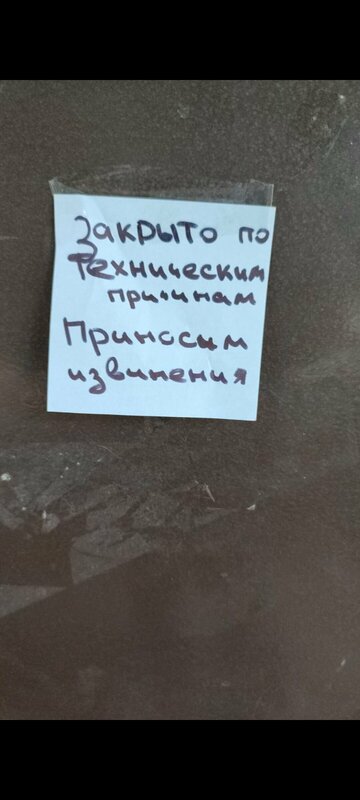 Закрыто по
техническим
причинам
Приносим
извинения